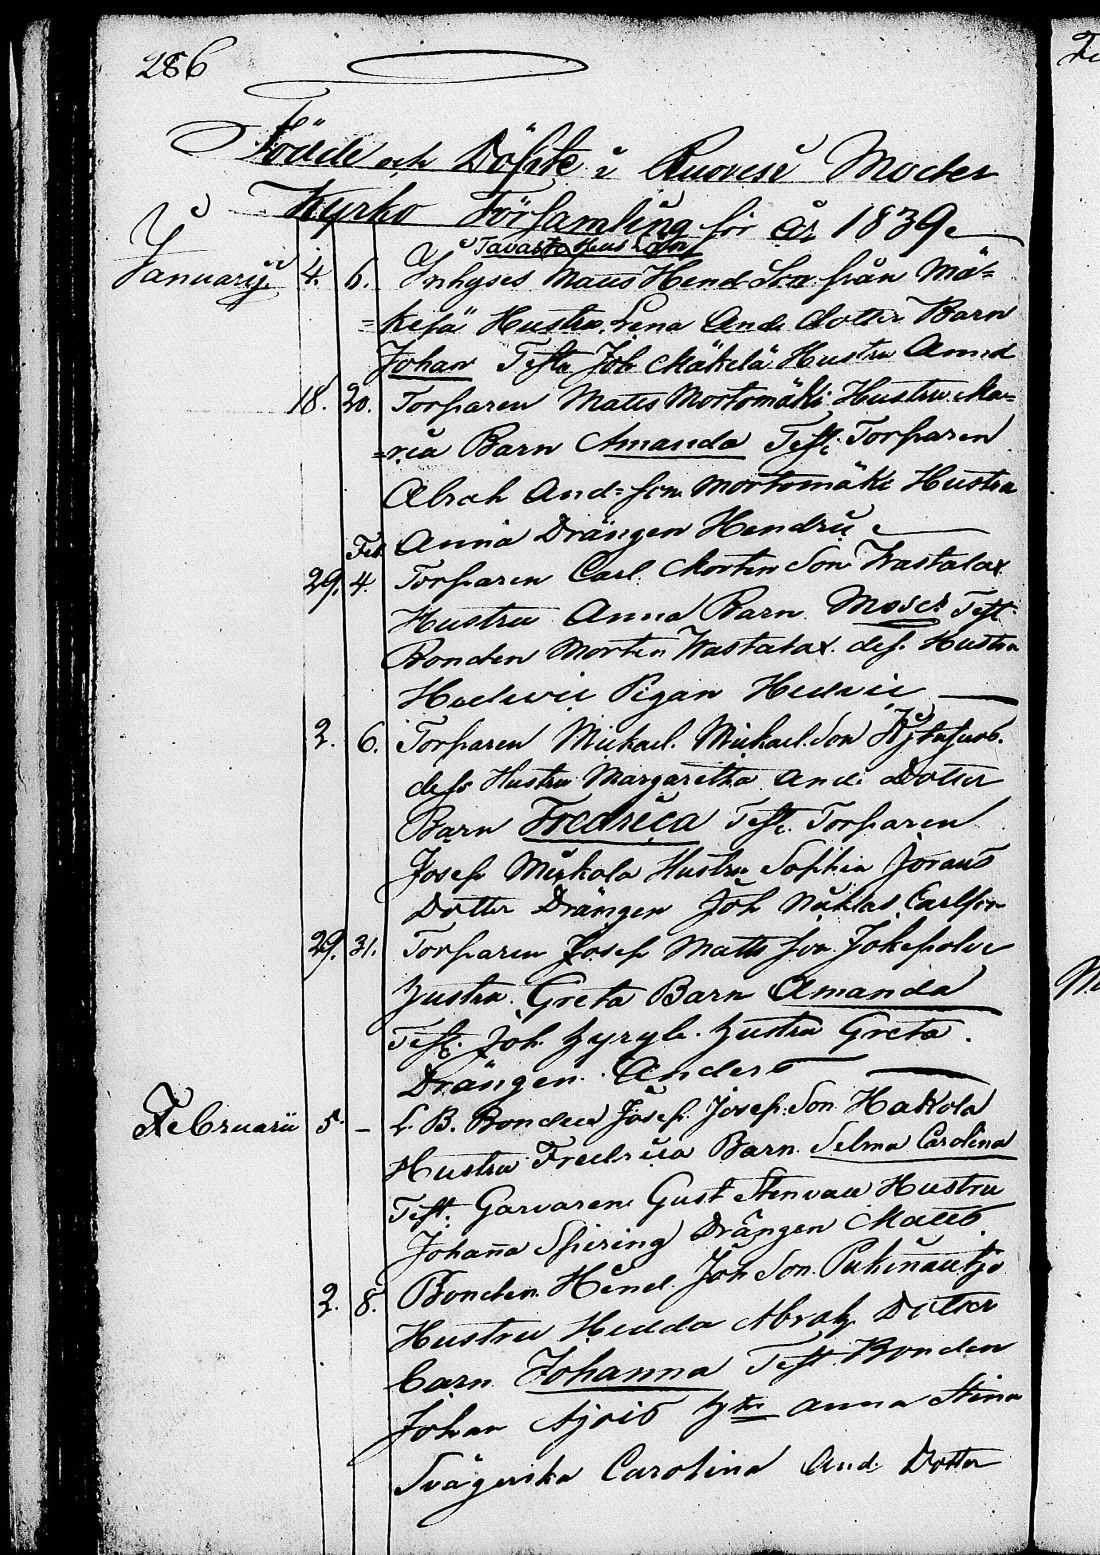 286
Födde och Döpte i Ruovesi Moder
Kyrko Församling för år 1839.
Tavastehus Län
Januarii 4. 6. Inhyses Matts Hend. Son från Mä-
=kelä Hustru Lena And. dotter Barn
Johan Test. Joh Mäkelä Hustru Anna
18. 20. Torparen Matts Mortomäki Hustru Ma=
=ria Barn Amanda Test. Torparen
Abrah And=son Mortomäki Hustru
Anna Drängen Hendric
Feb.
29. 4. Torparen Carl Morten Son Wastalax
Hustru Anna Barn Moses Test.
Bonden Morten Wastalax dess Hustru
Hedvic Pigan Hedvic
2. 6. Torparen Mickael Mickael Son
dess Hustru Margaretha And. Dotter
Barn Fredrica Test. Torparen
Josef Muskola Hustru Sophia Jörans
Dotter Drängen Joh Nicklas Carlson
29. 31. Torparen Josef Matts son Jokipolvi
Hustru Greta Barn Amanda
Test. Joh. Hustru Greta.
Drängen Anders
Februarii 5. - L. B. Bonden Josef Josef Son Hakkola
Hustru Fredrica Barn Selma Carolina
Test. Garvaren Gust Stenvall Hustru
Johanna Spiring Drängen Matts.
2. 8. Bonden Hend. Joh Son
Hustru Hedda Abrah Dotter
barn Johanna Test Bonden
Johan Ajois Hu Anna Stina
Svägerska Carolina And Dotter
Fe
M